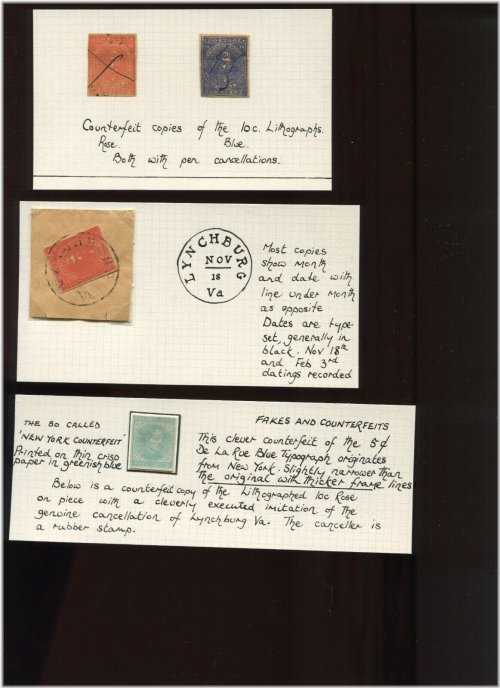 POSTAGE
Counterfeit copies of the 10c. Lithographs.
Rose. Blue.
Both with pen cancellations.
LYNCHBURG
NOV
18
Va
Va.
Most copies
show month
and date with
line under month
as opposite
Dates are type
set, generally in
black. Nov 18th
and Feb 3rd
datings recorded
THE SO CALLED
'NEW YORK COUNTERFEIT
Printed on thin crisp
paper in greenish blue
FIVE CENTS
FAKES AND COUNTERFEITS
This clever counterfeit of the 5¢
De La Rue Blue Typograph originates
from New York. Slightly narrower than
the original with thicker frame lines
Below is a counterfeit copy of the Lithographed 10c Rose
on piece with a cleverly executed imitation of the
genuine cancellation of Lynchburg Va. The canceller is
a rubber stamp.